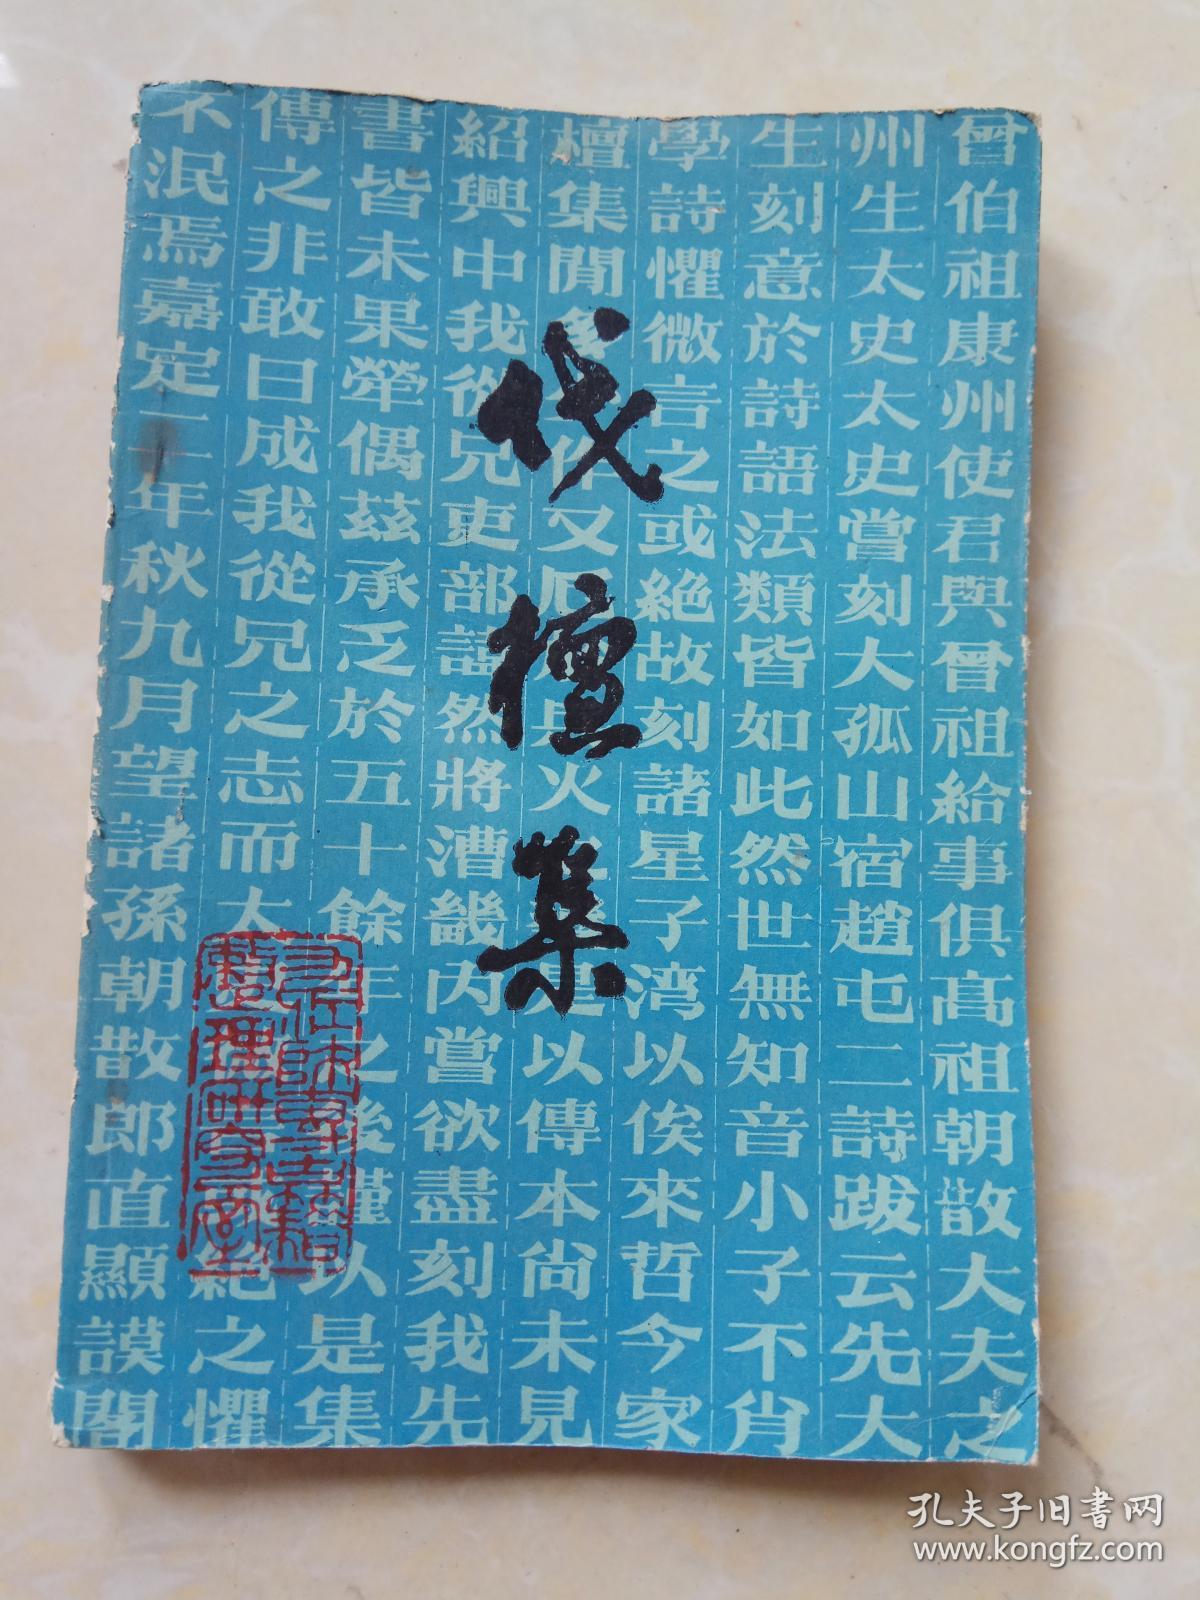 伐檀集
曾伯祖康州使君與曾祖給事俱髙祖朝散大夫之
州生太史太史嘗刻大孤山宿趙屯二詩跋云先大
生刻意於詩語法類皆如此然世無知音小子不肖
學詩懼微言之或絶故刻諸星子湾以俟來哲今家
檀集聞
又
火
是以傳本尚未見
紹興中我從兄吏部謡然將漕畿内嘗欲盡刻我先
書皆未果犖偶茲承乏於五十餘年之後謹以是集
傳之非敢曰成我從兄之志而大
紀之懼
不泯焉嘉定二年秋九月望諸孫朝散郎直顯謨閣
九江師專古籍
整理研究室
孔夫子旧书网
www.kongfz.com